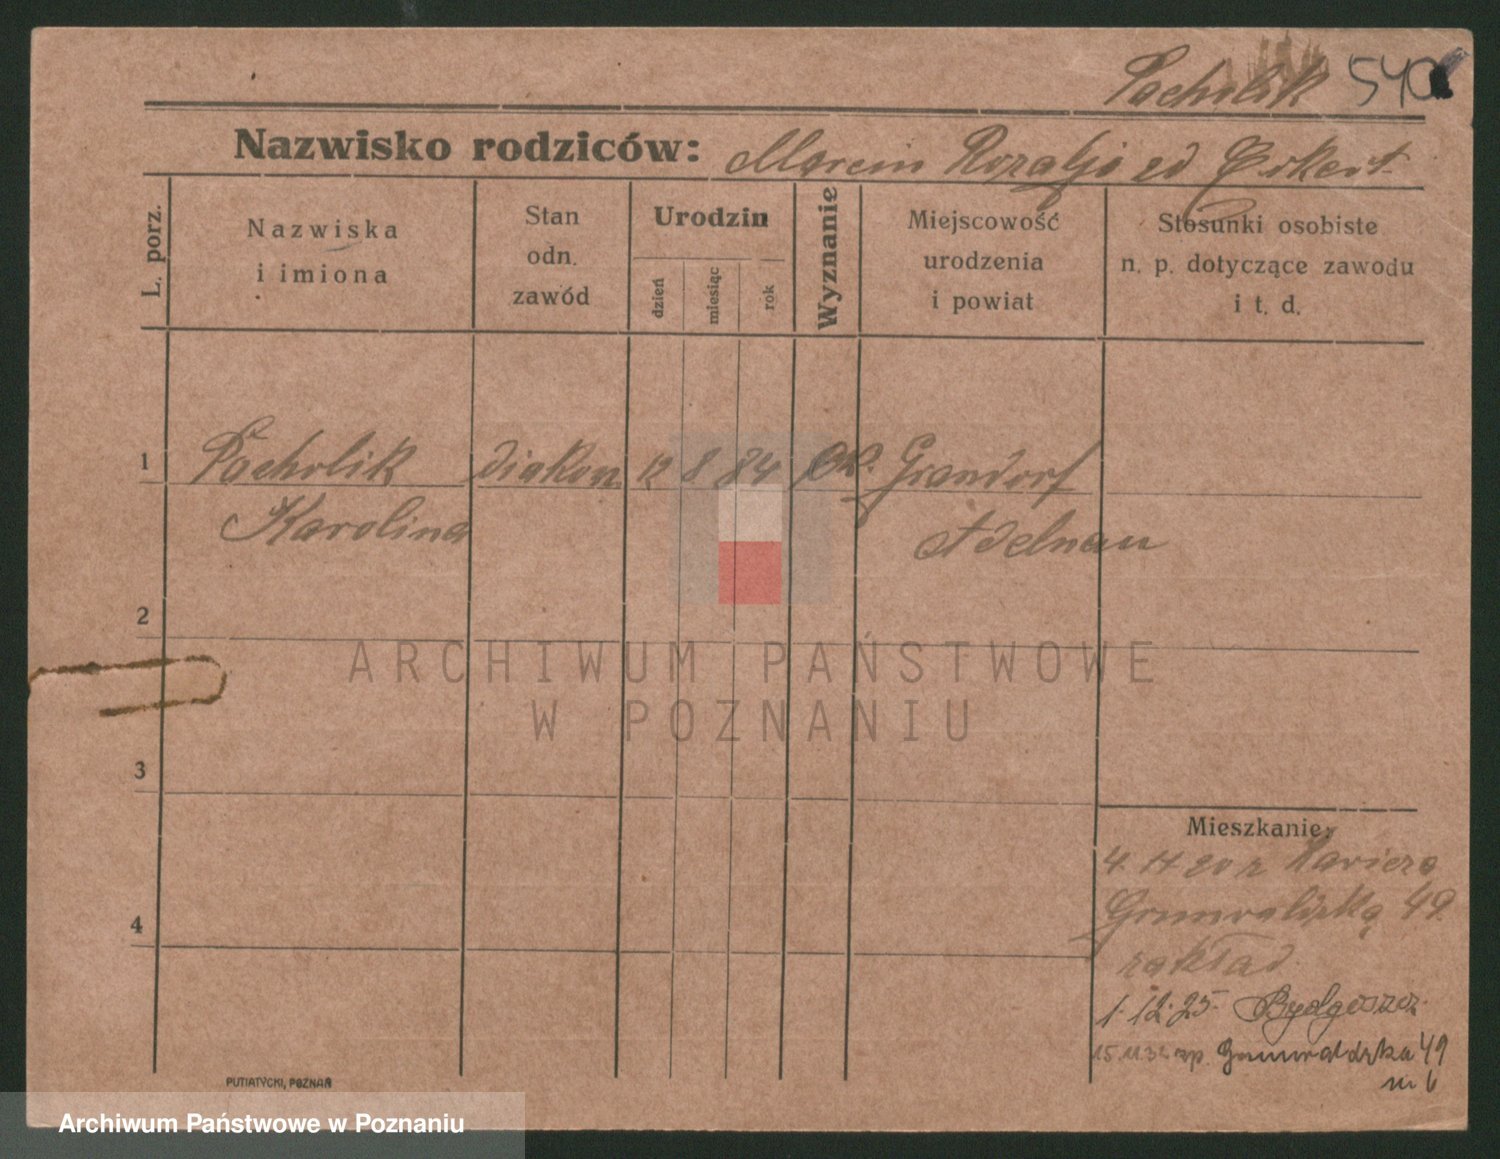 Pacholik 540
Nazwisko rodziców: Marcin Rozalja zd Eckert
L. porz.
Nazwiska
i imiona
Stan
odn.
zawód
Urodzin
dzień
miesiąc
rok
Wyznanie
Miejscowość
urodzenia
i powiat
Stosunki osobiste
n. p. dotyczące zawodu
i t. d.
1 Pacholik diakon 12 8 84 Grandorf
Karolina Adelnau
2
ARCHIWUM PAŃSTWOWE
W POZNANIU
3
Mieszkanie:
4. 11 20 z
4 Grunwaldzka 49
zakład
1. 12. 25 Bydgoszcz
15.11.32 Grunwaldzka 49
m 6
PUTIATYCKI, POZNAŃ
Archiwum Państwowe w Poznaniu